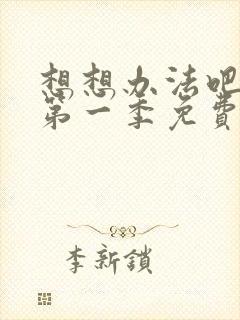 想想办法吧
第一季免費
李新鎖